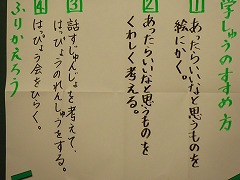 学しゅうのすすめ方
1 あったらいいなと思うものを
絵にかく。
2 あったらいいなと思うものを
くわしく考える。
3 話すじゅんじょを考えて、
はっぴょうのれんしゅうをする。
4 はっぴょう会をひらく。
ふりかえろう